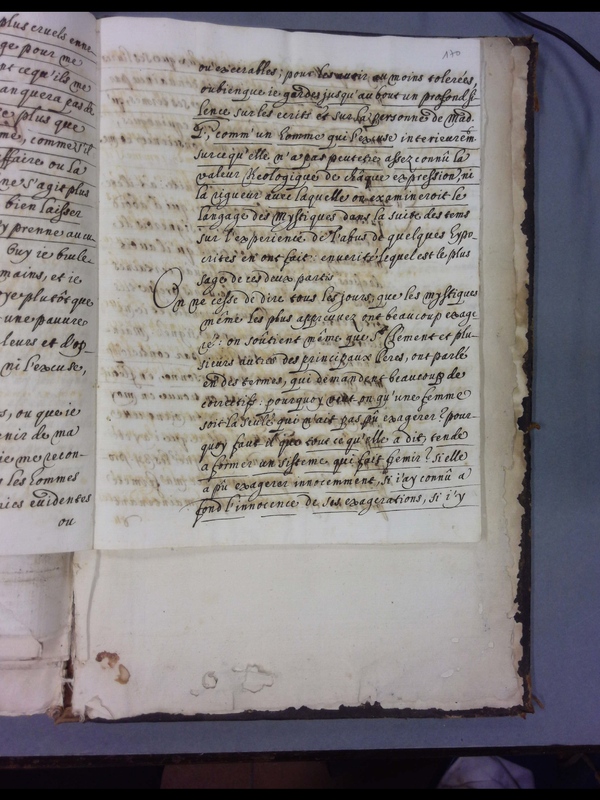 plus cruels enne-
ge pour me
nt ce qu'ils me
anquera pas de
e plus que
me, comme s'il
ffaire ou la
ne s'agit plus
bien laisser
y prenne aucu-
buy ie brule-
mains, et ie
oye plutôt que
une pauure
leurs et d'op-
ni l'excuse,
s, ou que ie
enir de ma
ie me recon-
les hommes
ries euidentes
ou
170
ou execrables; pour les auoir au moins tolerées,
ou bien que ie gardes jusqu'au bout un profond si
lence sur les ecrits et sur la personne de Mad.
G, comm' un homme qui l'excuse interieurem.t
sur ce qu'elle n'a pas peutetre assez connû la
valeur theologique de châque expression, ni
la rigueur auec laquelle on examineroit le
langage des Mystiques dans la suite des tems
sur l'experience de l'abus de quelques hypo-
crites en ont fait: en uerité lequel est le plus
sage de ces deux partis
On ne cesse de dire tous les jours, que les mystiques
même les plus approuuez ont beaucoup exage
ré: on soutient même que S.t Clement et plu-
sieurs autres des principaux Peres, ont parlé
en des termes, qui demandent beaucoup de
correctif: pourquoy veut on qu'une femme
soit la seule qui n'ait pas pû exagerer? pour-
quoy faut il que tout ce qu'elle a dit, tende
a former un sisteme qui fait fremir? si elle
a pu exagerer innocemment, si i'ay connû a
fond l'innocence de ses exagerations, si i'y